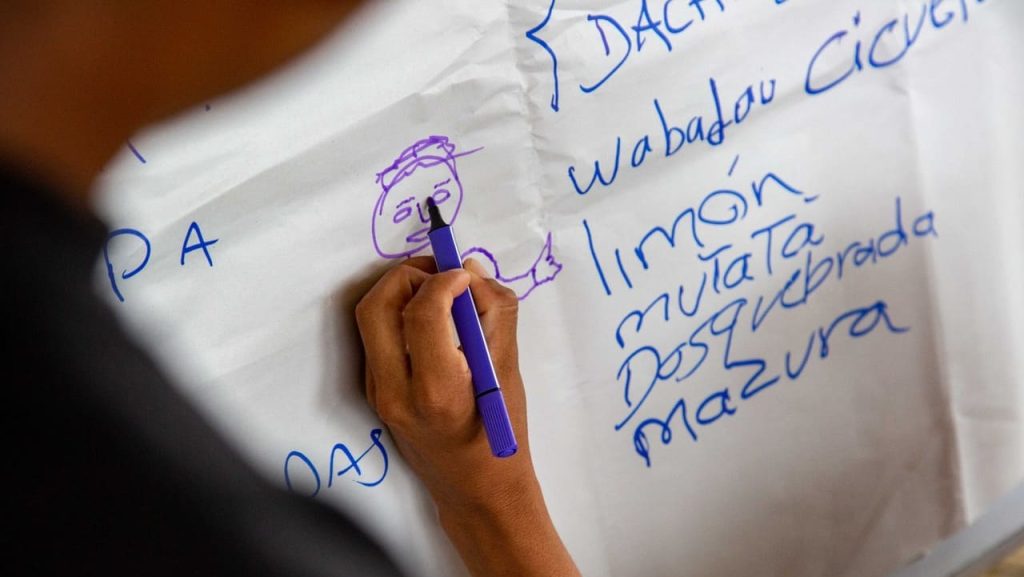 wabadou cicue
limón
mutatá
Dosquebrada
mazura
PA
OAS